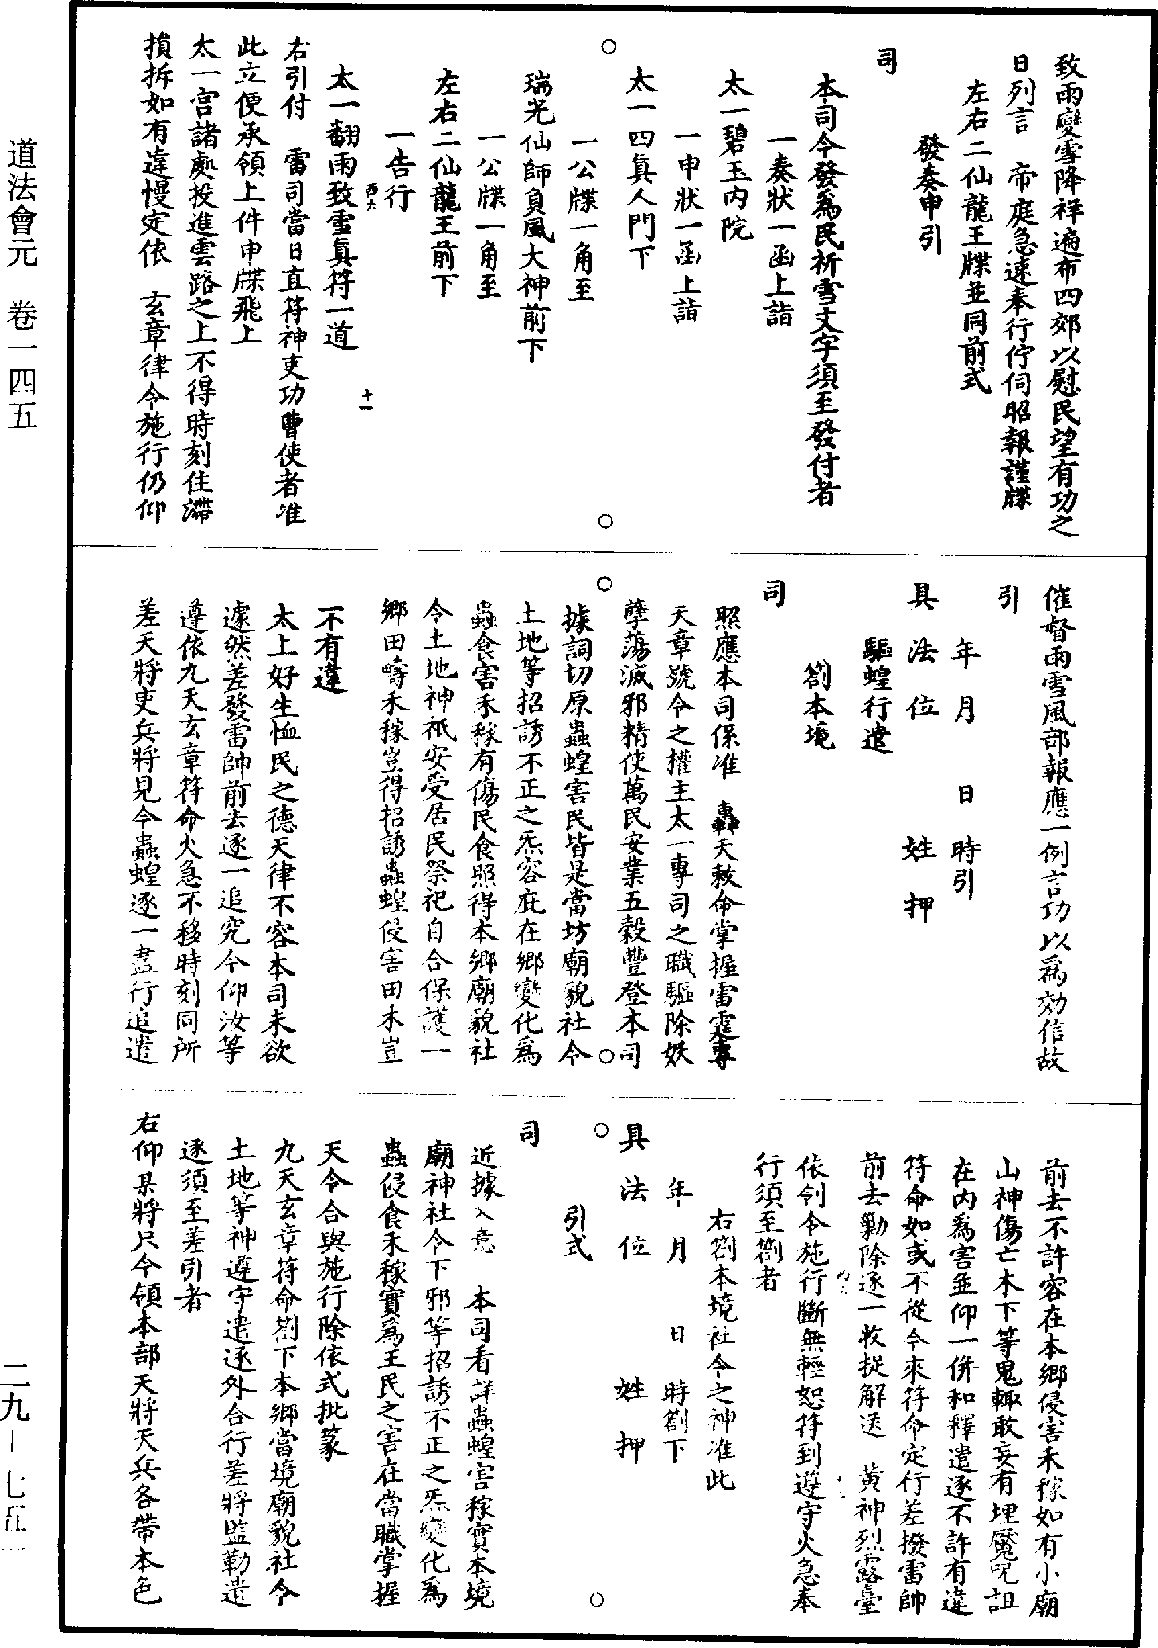 致雨變雪降祥遍布四郊以慰民望有功之
日列言　帝庭急速奉行佇伺昭報謹牒
左右二仙龍王牒並同前式
發奏申引
司
本司今發為民祈雪文字須至發付者
一奏狀一函上詣
太一碧玉內院
一申狀一函上詣
太一四真人門下
一公牒一角至
瑞光仙師負風大神前下
一公牒一角至
左右二仙龍王前下
一告行
太一翻雨致雪真符一道
右引付　雷司當日直符神吏功曹使者准
此立便承領上件申牒飛上
太一宮諸處投進雲路之上不得時刻住滯
損拆如有違慢定依　玄章律令施行仍仰
西六
十一
催督雨雪風部報應一例言功以為効信故
引
年　月　　日　時引
具　法　位　　姓　押
驅蝗行遣
劄本境
司
照應本司係准　轟天敕命掌握雷霆專
天章號令之權主太一專司之職驅除妖
孽蕩滅邪精使萬民安業五穀豐登本司
據詞切原蟲蝗害民皆是當坊廟貌社令
土地等招誘不正之炁容庇在鄉變化為
蟲食害禾稼有傷民食照得本鄉廟貌社
令土地神祇安受居民祭祀自合保護一
鄉田疇禾稼豈得招誘蟲蝗侵害田禾豈
不有違
太上好生恤民之德天律不容本司未欲
遽然差發雷帥前去逐一追究今仰汝等
遵依九天玄章符命火急不移時刻同所
差天將吏兵將見今蟲蝗逐一盡行追遣
前去不許容在本鄉侵害禾稼如有小廟
山神傷亡木下等鬼輒敢妄有埋魘咒詛
在內為害並仰一併和釋遣逐不許有違
符命如或不從今來符命定行差撥雷帥
前去勦除逐一收捉解送　黃神烈露臺
依令施行斷無輕恕符到遵守火急奉
行須至劄者
右劄本境社令之神准此
年　月　　日　時劄下
具　法　位　　姓　押
引式
司
近據入意　本司看詳蟲蝗害稼實本境
廟神社令下邪等招誘不正之炁變化為
蟲侵食禾稼實為王民之害在當職掌握
天令合與施行除依式批篆
九天玄章符命劄下本鄉當境廟貌社令
土地等神遵守遣逐外合行差將監勒遣
逐須至差引者
右仰某將只今領本部天將天兵各帶本色
道法會元　卷一四五
二九－七五一